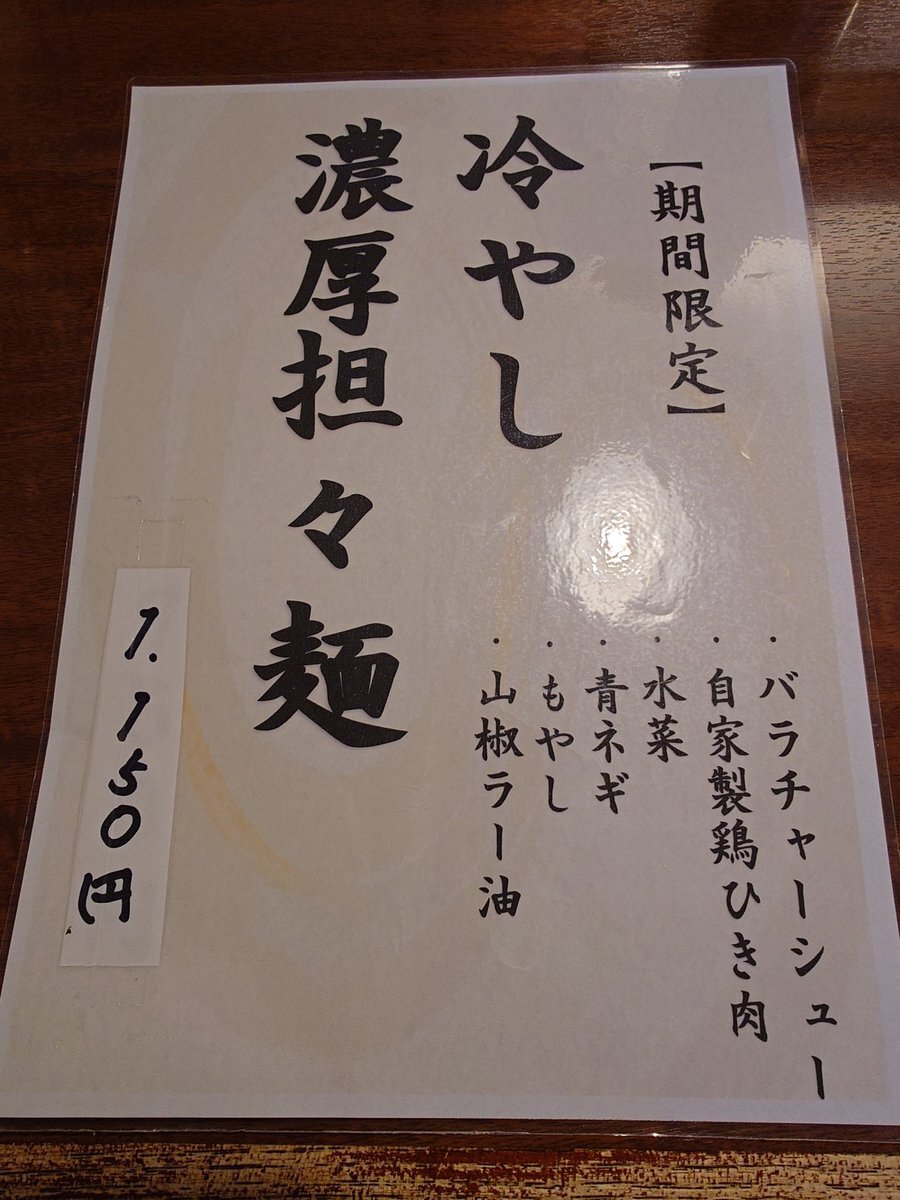 【期間限定】
冷やし
濃厚担々麺
・バラチャーシュー
・自家製鶏ひき肉
・水菜
・青ネギ
・もやし
・山椒ラー油
1.150円